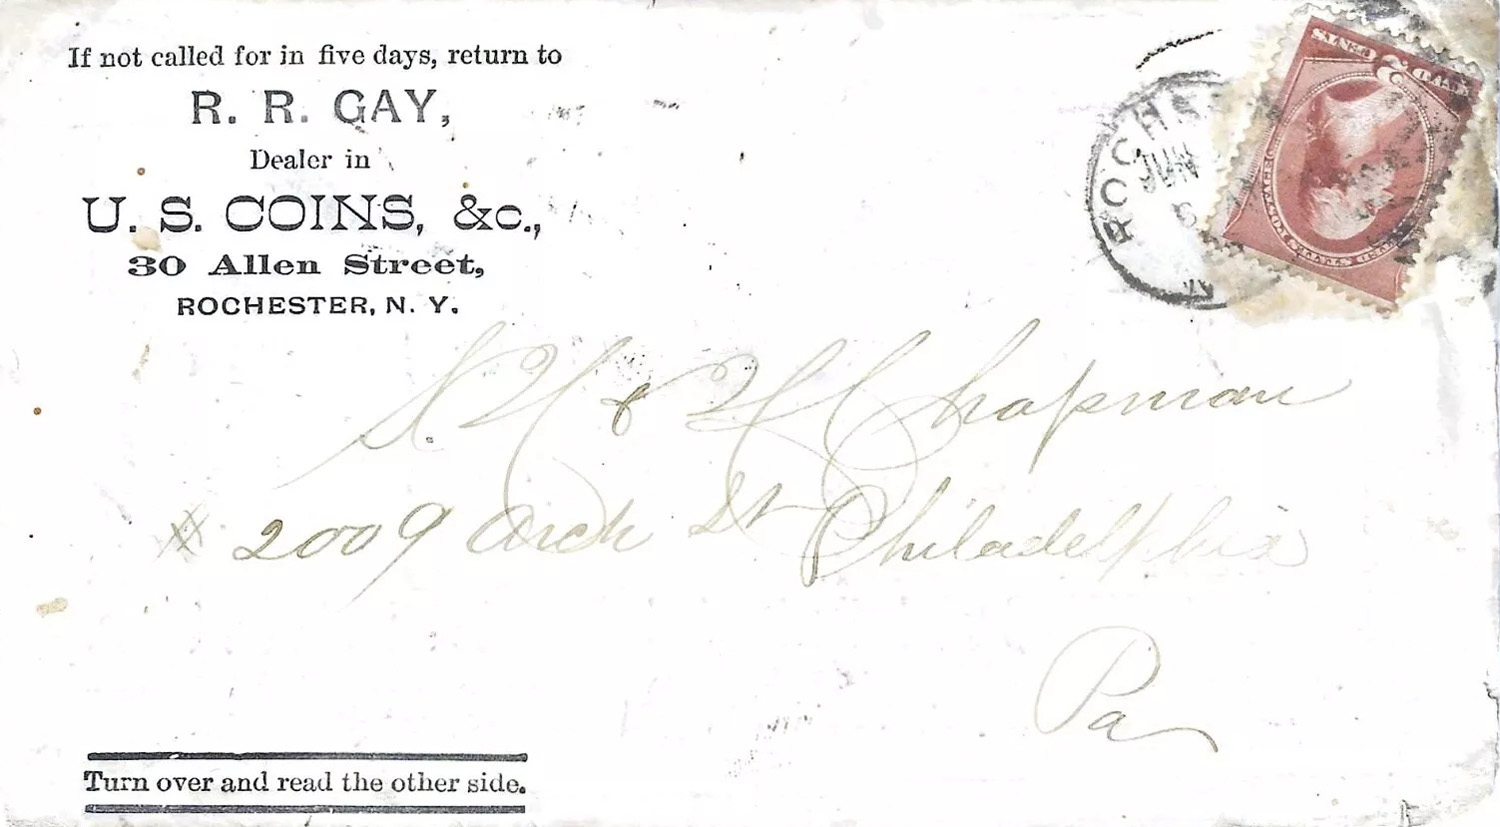 If not called for in five days, return to
R. R. GAY,
Dealer in
U. S. COINS, &c.,
30 Allen Street,
ROCHESTER, N. Y.
ROCHES
JUN
S. H & H Chapman
2009 Arch St Philadelphia
Pa
Turn over and read the other side.